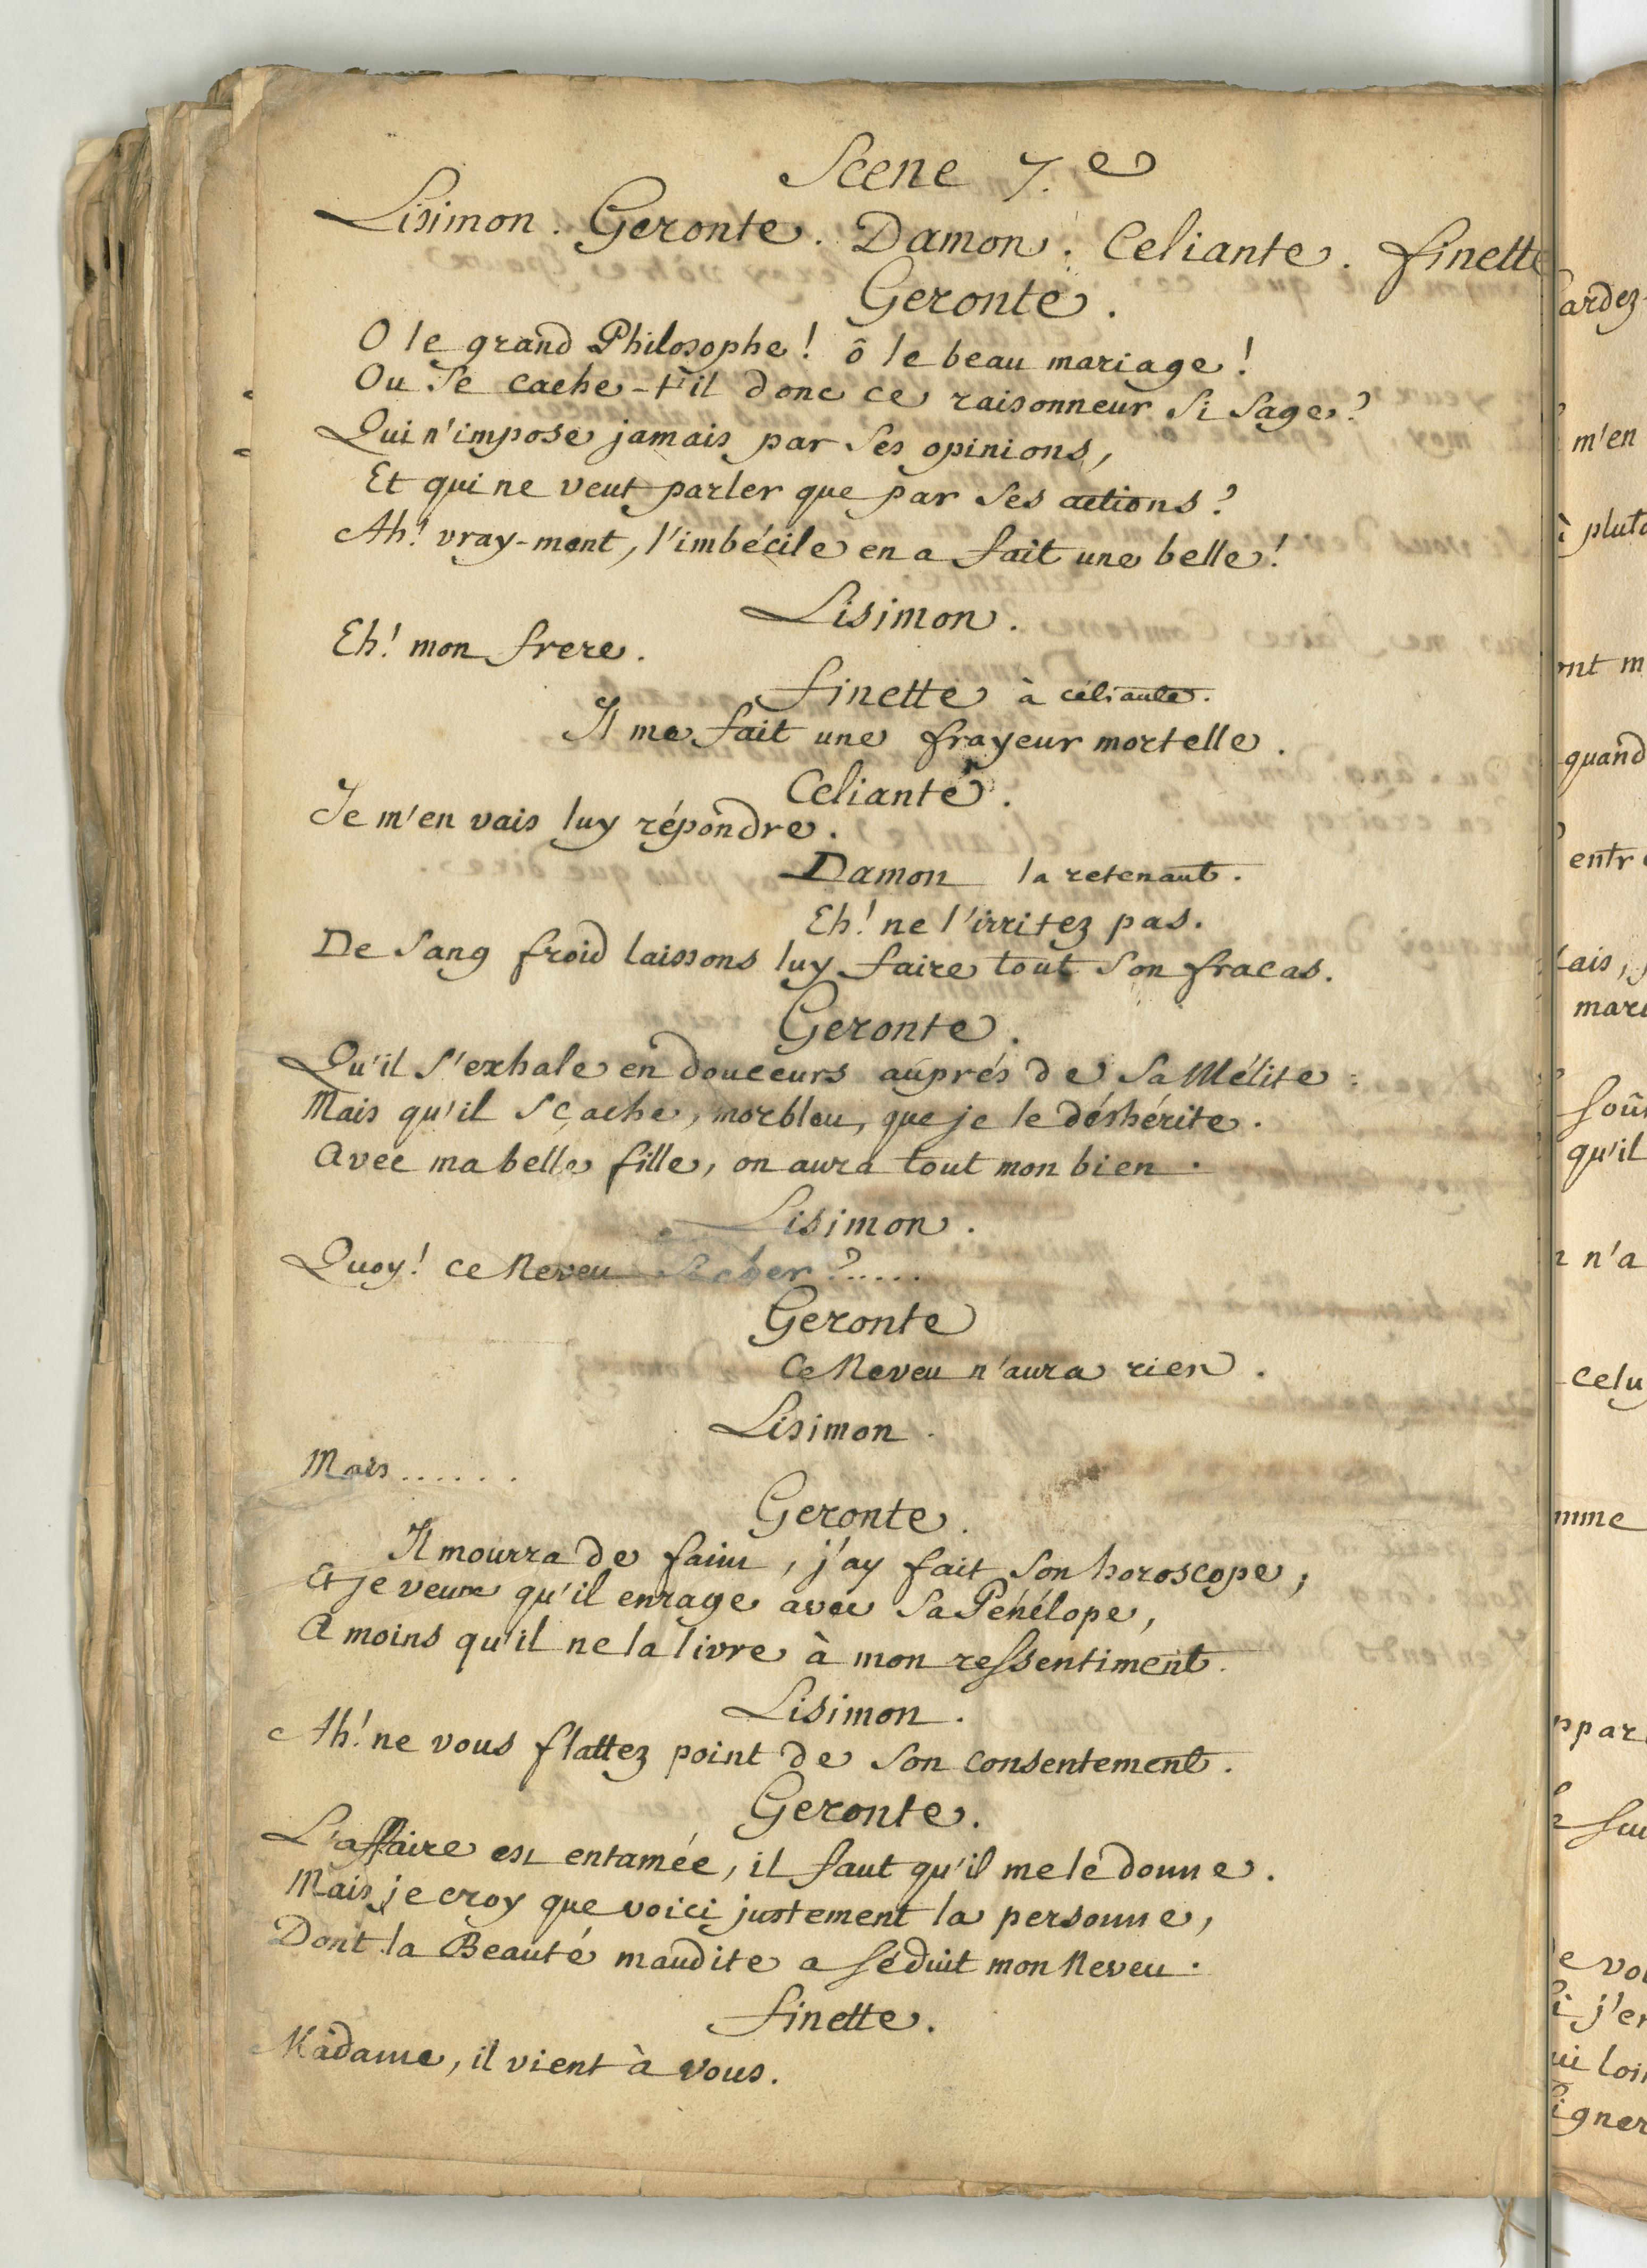 Scene 7.e
Lisimon. Geronte. Damon. Celiante. finette
Geronte.
O le grand Philosophe! ô le beau mariage!
Ou se cache-t'il donc ce raisonneur si sage?
Qui n'impose jamais par ses opinions,
Et qui ne veut parler que par ses actions?
Ah! vray-ment, l'imbécile en a fait une belle!
Lisimon.
Eh! mon frere.
finette à céliante.
Il me fait une frayeur mortelle.
Celiante.
Je m'en vais luy répondre.
Damon la retenant.
Eh! ne l'irritez pas.
De sang froid laissons luy faire tout son fracas.
Geronte.
Qu'il s'exhale en douceurs auprés de sa Mélite:
Mais qu'il sçache, morbleu, que je le déshérite.
Avec ma belle fille, on aura tout mon bien.
Lisimon.
Quoy! ce Neveu si cher?.....
Geronte
Ce Neveu n'aura rien.
Lisimon.
Mais......
Geronte.
Il mourra de faim, j'ay fait son horoscope;
Et je veux qu'il enrage avec sa Pénélope,
A moins qu'il ne la livre à mon ressentiment.
Lisimon.
Ah! ne vous flattez point de son consentement.
Geronte.
L'affaire est entamée, il faut qu'il me le donne.
Mais je croy que voici justement la personne,
Dont la Beauté maudite a séduit mon Neveu.
finette.
Madame, il vient à vous.
ardez
m'en
quand
mari
qu'il
n'a